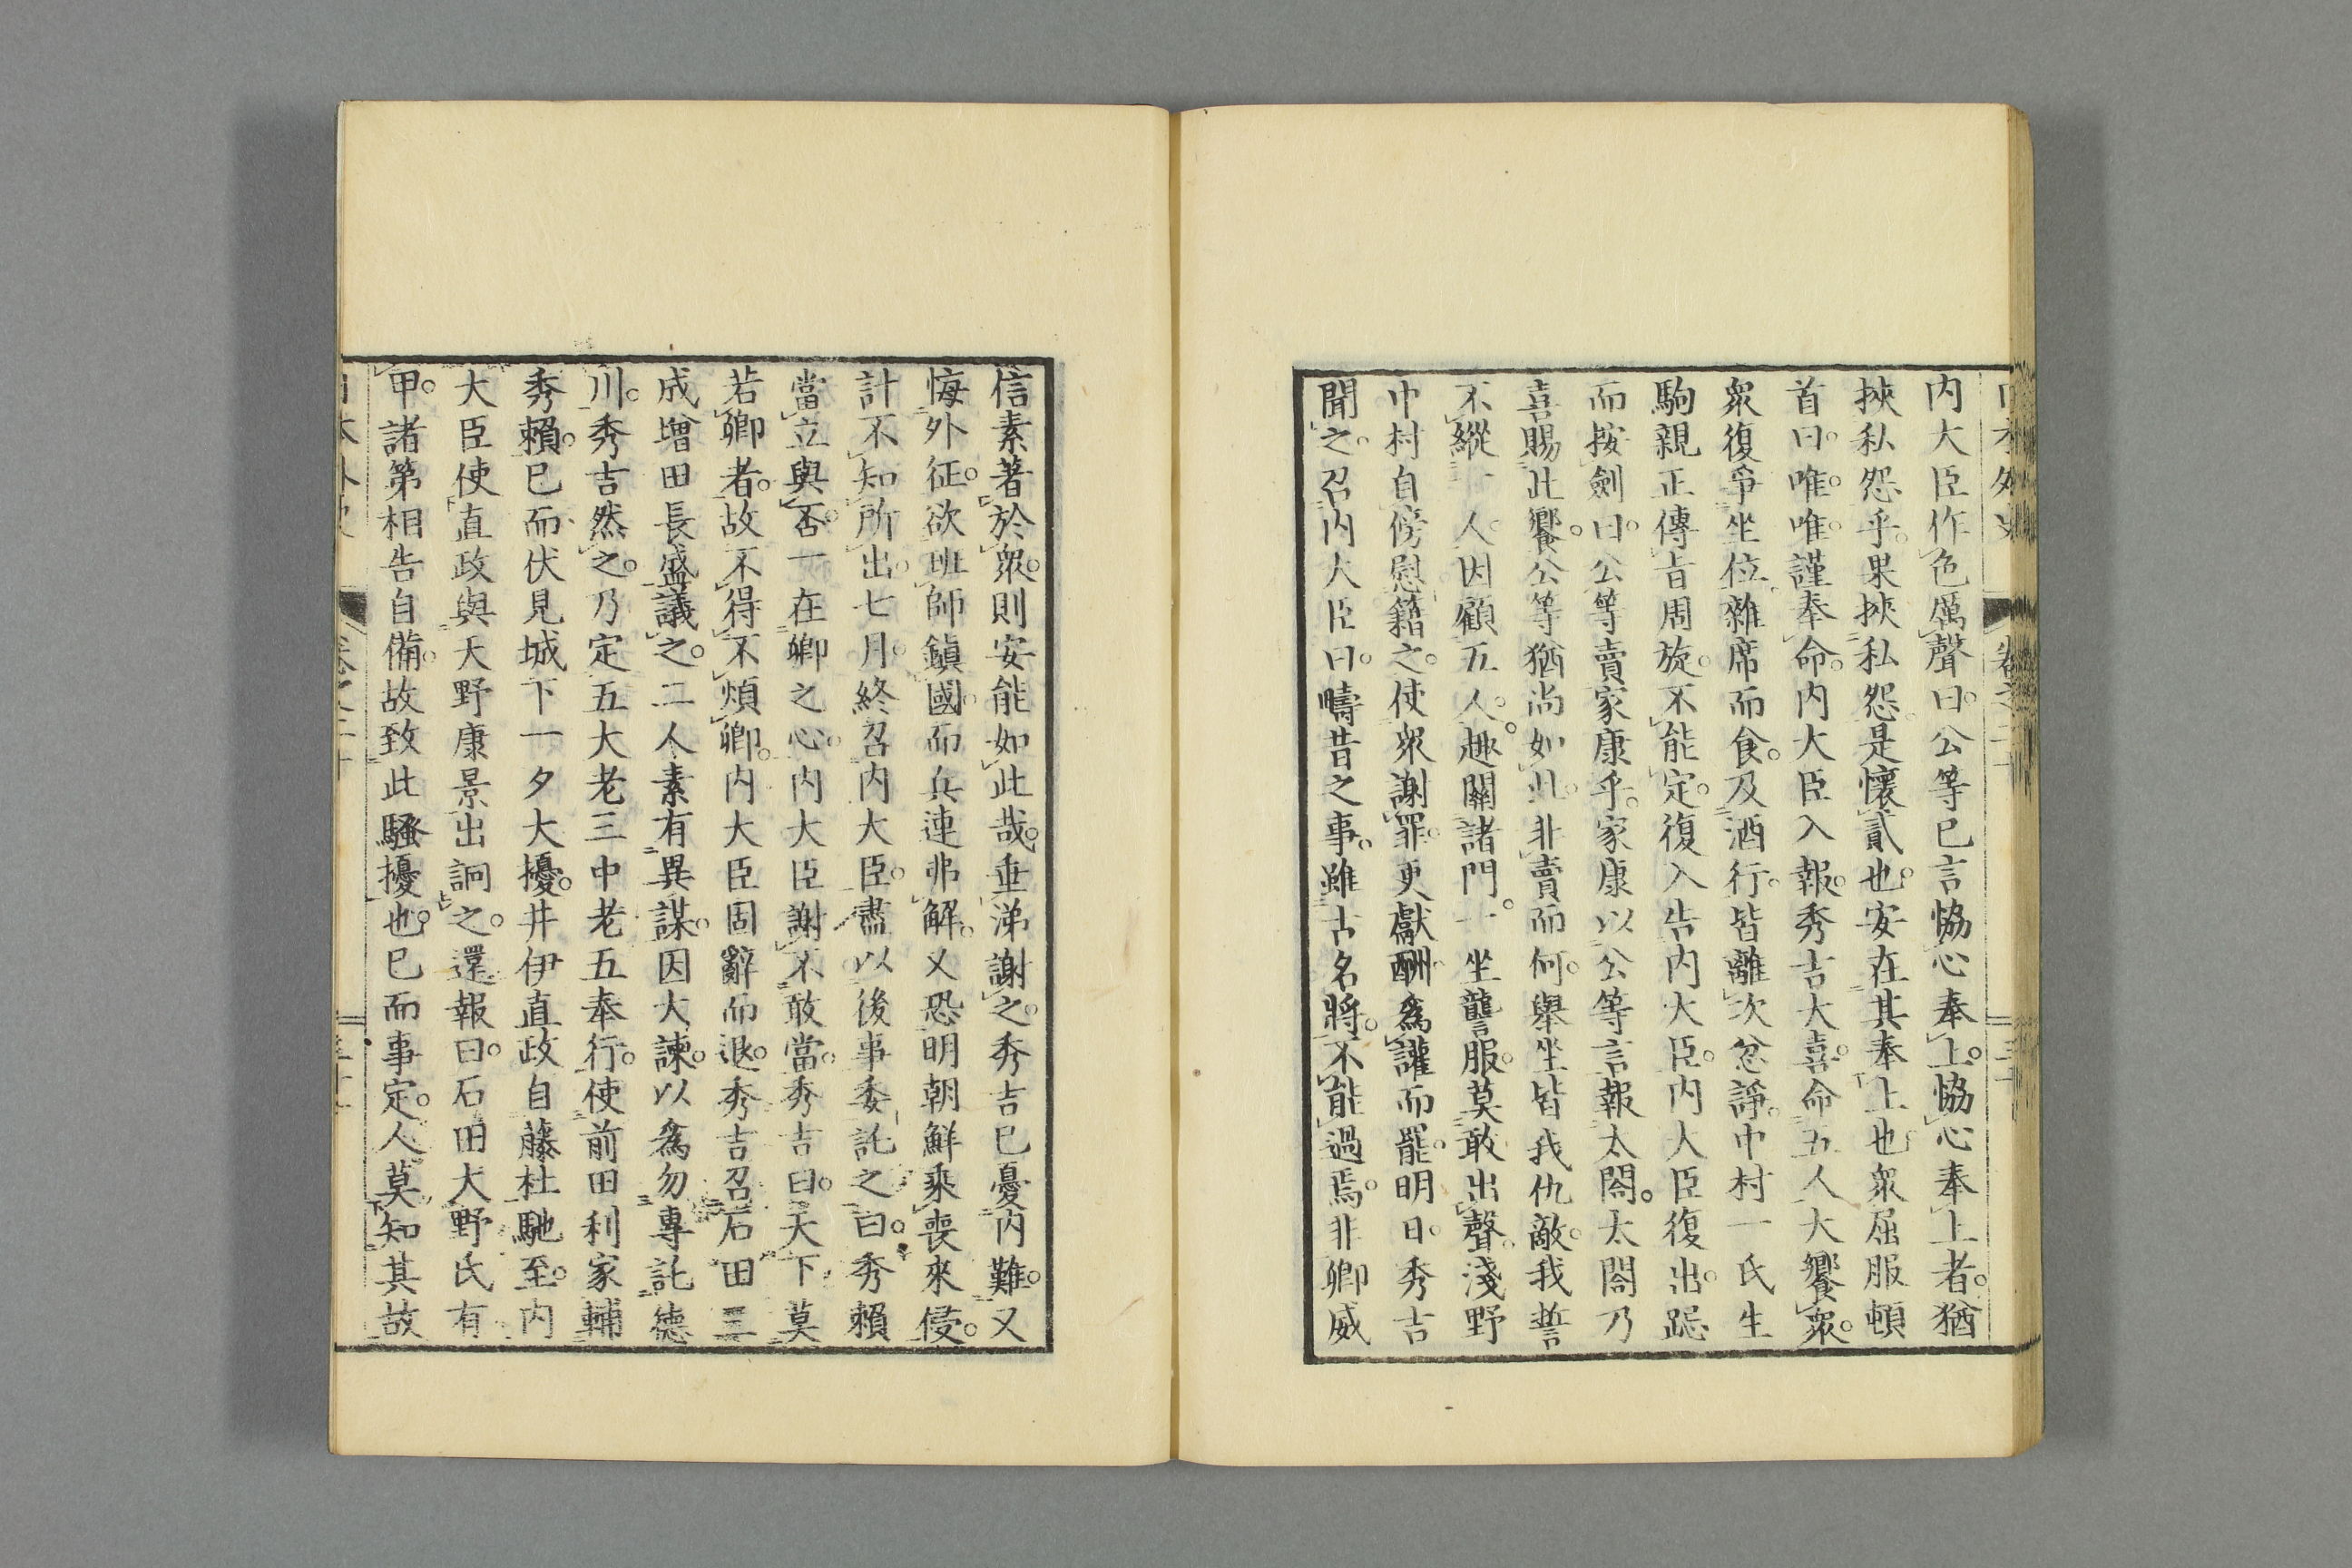 内大臣作色厲聲曰。公等已言恊心奉上。恊心奉上者。猶
挾私怨乎。果挾私怨是懷貳也。安在其奉上也。衆屈服頓
首曰。唯。唯。謹奉命。内大臣入報。秀吉大喜。命五人大饗衆。
衆復爭坐位。雜席而食。及酒行。皆離次忿諍。中村一氏生
駒親正傳旨周旋。不能定。復入告内大臣。内大臣復出。跽
而按劍曰。公等賣家康乎。家康以公等言報太閤。太閤乃
喜賜此饗。公等猶尚如此。非賣而何。舉坐皆我仇敵。我誓
不縱一人。因顧五人。趣關諸門。一坐讋服。莫敢出聲。淺野
中村自傍慰籍之。使衆謝罪。更獻酬爲讙而罷。明日。秀吉
聞之。召内大臣曰。疇昔之事。雖古名將。不能過焉。非卿威
信素著於衆。則安能如此哉。垂涕謝之。秀吉已憂内難。又
悔外征。欲班師鎭國。而兵連弗解。又恐明朝鮮乘喪來侵。
計不知所出。七月。終召内大臣。盡以後事委託之曰。秀賴
當立與否。一在卿之心。内大臣謝不敢當。秀吉曰。天下莫
若卿者。故不得不煩卿。内大臣固辭而退。秀吉召石田三
成增田長盛議之。二人素有異謀。因大諫。以爲勿專託德
川。秀吉然之。乃定五大老三中老五奉行。使前田利家輔
秀賴。已而伏見城下一夕大擾。井伊直政自藤杜馳至。内
大臣使直政與大野康景出詗之。還報曰。石田大野氏有
甲。諸第相告自備。故致此騷擾也。已而事定。人莫知其故